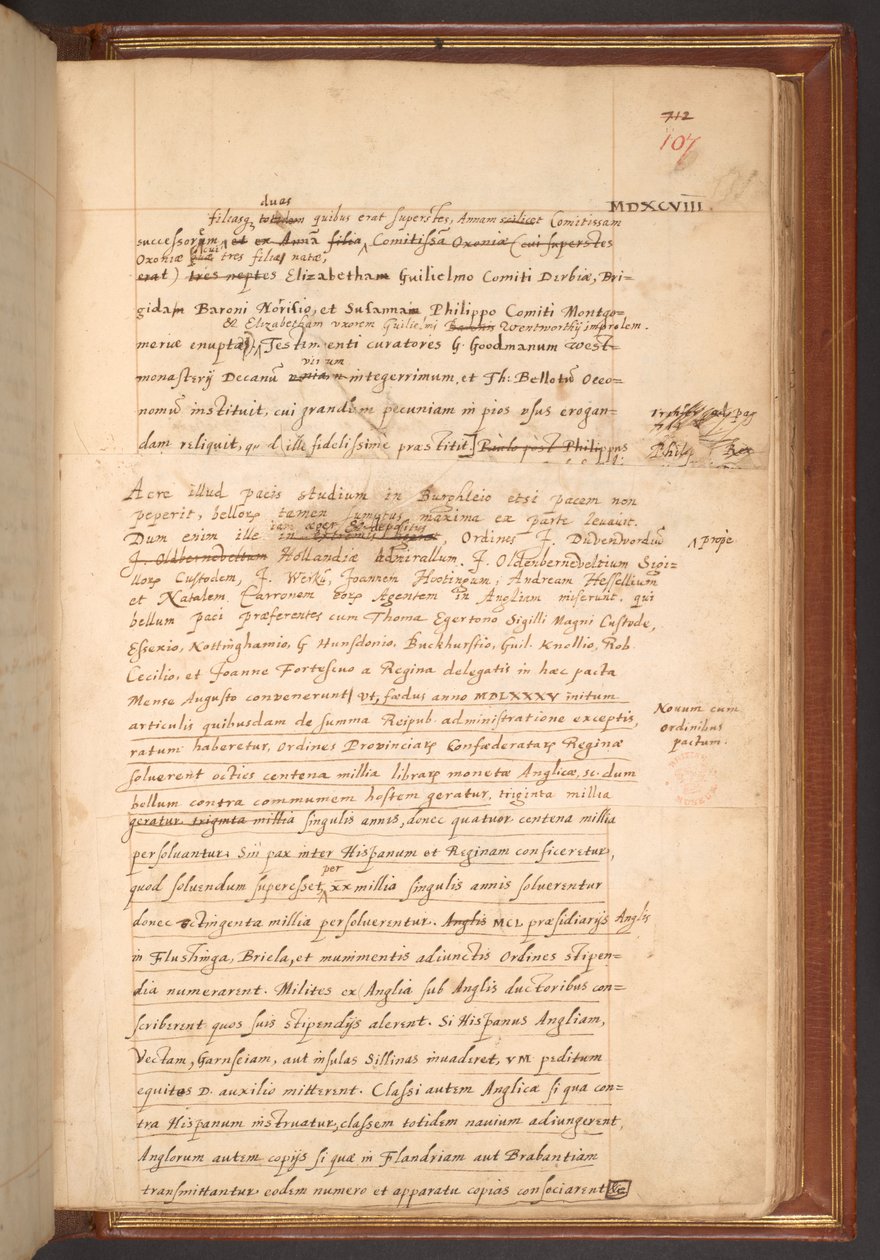 712
107
MDXCVIII.
duas
filiasq, totidem quibus erat superstes, Annam scilicet Comitissam
successorem et ex Anna filia Comitissâ Oxoniæ (cui superstes
Oxoniæ cui tres filiæ natæ,
erat) tres neptes Elizabetham Guilielmo Comiti Derbiæ, Bri-
gidam Baroni Norisio, et Susannam Philippo Comiti Montgo=
& Elizabetham uxorem Guilielmi Wentworthij improlem.
meriæ enuptas. Testamenti curatores G. Goodmanum West=
virum
monasterij Decanū integerrimum, et Th: Bellotū Oeco=
nomū instituit, cui grandem pecuniam in pios vsus erogan=
dam reliquit, quod ille fidelissime præstitit. Paulo post Philippus
Philip Rex
Acre illud pacis studium in Burghleio etsi pacem non
peperit, bellorꝫ tamen sumptus maxima ex parte leuauit.
iam æger & depositus
Dum enim ille in extremis, Ordines J. Duvenvordiū
prope
J. Oldberneveltum Hollandiæ Admirallum, J. Oldenberneveltium Sigi=
llorꝫ Custodem, J. Werkū, Joannem Hootingum, Andream Hessellium
et Natalem Carronem eorꝫ Agentem in Angliam miserunt. qui
bellum paci præferentes cum Thoma Egertono Sigilli Magni Custode,
Essexio, Nottinghamio, G Hunsdonio, Buckhurstio, Guil. Knollio, Rob.
Cecilio, et Joanne Fortescuo a Regina delegatis in hæc pacta
Mense Augusto convenerunt, vt, fædus anno MDLXXXV initum
Nouum cum
Ordinibus
pactum.
articulis quibusdam de summa Reipub. administratione exceptis,
ratum haberetur, Ordines Provinciarꝫ Confæderatarꝫ Reginæ
solverent octies centena millia librarꝫ monetæ Anglicæ, sc. dum
bellum contra communem hostem geratur, triginta millia
geratur, triginta millia singulis annis, donec quatuor centena millia
persoluantur. Sin pax inter Hispanum et Reginam conficeretur,
per
quod soluendum superesset, xx millia singulis annis soluerentur
donec octingenta millia persoluerentur. Anglis MCL præsidiarijs Anglis
in Flushinga, Briela, et munimentis adiunctis Ordines stipen=
dia numerarent. Milites ex Anglia sub Anglis ductoribus con=
scriberent quos suis stipendijs alerent. Si Hispanus Angliam,
Vectam, Garnseiam, aut insulas Sillinas invaderet, VM peditum
equites D. auxilio mitterent. Classi autem Anglicæ si qua con=
tra Hispanum instruatur, classem totidem nauium adiungerent,
Anglorum autem copijs si quæ in Flandriam aut Brabantiam
transmittantur eodem numero et apparatu copias consociarent